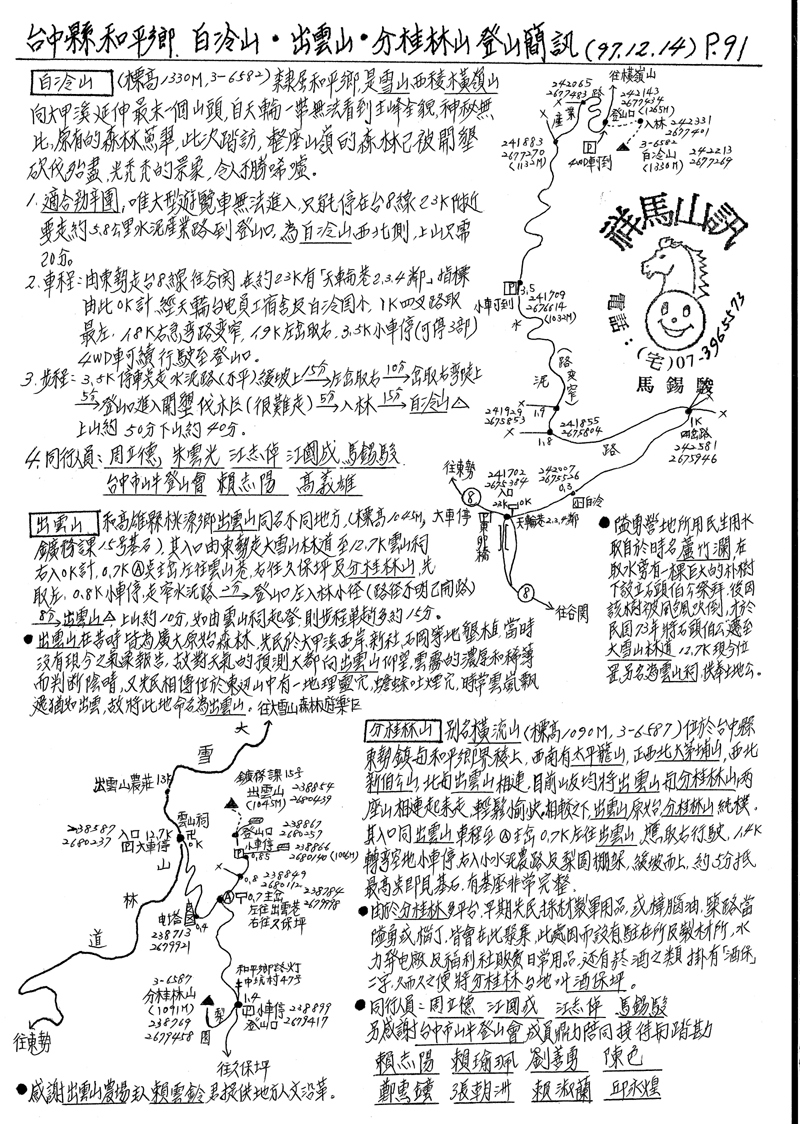 台中縣和平鄉.白冷山・出雲山・分桂林山登山簡訊(97.12.14)P.91
白冷山 (標高1330M,3-6582)隸屬和平鄉,是雪山西稜木橫嶺山
向大甲溪延伸最末一個山頭,自天輪一帶無法看到主峰全貌,神秘無
比,原有的森林蔥翠,此次踏訪,整座山嶺的森林已被開墾
砍伐殆盡,光禿禿的景象,令人不勝唏噓。
1.適合勁辛團,唯大型遊覽車無法進入,只能停在台8線23K附近
要走約5.8公里水泥產業路到登山口,為白冷山西北側,上山只需
20分。
2.車程:由東勢走台8線往谷關,在約23K有「天輪巷2.3.4鄰」指標
由此0K計,經天輪台電員工宿舍及白冷國小,1K四叉路取
最左,1.8K右急彎路變窄,1.9K左岔取右,3.5K小車停(可停3部)
4WD車可續行駛至登山口。
3.步程:3.5K停車點走水泥路(水平)緩坡上 15分→左岔取右 10分→岔取右彎陡上
5分→登山口進入開墾伐木區(很難走) 5分→入林 15分→白冷山△
上山約50分下山約40分。
4.同行人員:周立德,朱雲光 江志偉 江國成 馬錫駿
台中市山牛登山會 賴志陽 高義雄
往橫嶺山
242065
2677483
產業路
242143
2677434
登山口(1265M)
入林
242331
2677401
241883
2677270
(1132M)
P
4WD車可到
3-6582
白冷山
(1330M)
242213
2677269
祥馬山訊
電話:(宅)07-3965573
馬錫駿
P 3.5
小車可到
241709
2676614
(1032M)
水泥路
(路變窄)
241929
2675853
1.9
241855
2675804
1.8
1K
四岔路
242581
2675946
往東勢
8
241702
2675384
入口
23K 0K
242007
2675526
0.3
白冷
大車停
東卯橋
天輪巷2,3,4鄰
8
往谷關
出雲山 和高雄縣桃源鄉出雲山同名不同地方,(標高1045M,
鑛務課15号基石),其入口由東勢走大雪山林道至12.7K雲山祠
右入0K計,0.7KⒶ點主岔左往出雲巷,右往久保坪及分桂林山,先
取左,0.8K小車停,走窄水泥路 一分→登山口左入林小徑(路徑不明已開路)
8分→出雲山△上山約10分,如由雲山祠起登,則步程單趟多約15分。
●出雲山在昔時皆為廣大原始森林,先民於大甲溪西岸,新社,石岡等地墾植,當時
沒有現今之氣象報告,故對天氣的預測大都向出雲山仰望,雲霧的濃厚和稀薄
而判斷陰晴,又先民相傳位於東邊山中有一地理靈穴,蟾蜍吐煙穴,時常雲嵐飄
邈猶如出雲,故將此地命名為出雲山。
●隘勇營地所用民生用水
取自於時名蘆竹湳,在
取水旁有一棵巨大的朴樹
下設立石頭伯公祭拜,後因
該樹被風颱吹倒,才於
民國73年將石頭伯公遷至
大雪山林道12.7K現今位
置另名為雲山祠,供奉土地公。
往大雪山森林遊樂區
大雪山林道
出雲山農莊13K
鑛務課15号
出雲山
(1045M)
238854
2680439
雲山祠
0K
238587
2680237
入口12.7K
大車停
登山口
238867
2680257
小車停
238866
2680140(1006M)
0.85
0.8
238849
2680112
Ⓐ 0.7主岔
左往出雲巷
右往久保坪
238784
2679978
電塔
0.4
238713
2679921
和平鄉路灯
中坑村47号
3-6587
分桂林山
(1091M)
238769
2679458
1.4
梨園
小車停
登山口
238899
2679417
往東勢
往久保坪
分桂林山 別名橫流山(標高1090M,3-6587)位於台中縣
東勢鎮与和平鄉界稜上,西南有太平龍山,正西北大茅埔山,西北
新伯公山,北与出雲山相連,目前山友均將出雲山与分桂林山两
座山相連起來走,輕鬆愉快,相較之下,出雲山原始,分桂林山純樸。
其入口同出雲山車程至Ⓐ主岔0.7K左往出雲山,應取右行駛,1.4K
轉彎空地小車停,右入小水泥農路及梨園棚架,緩坡而上,約5分抵
最高点即見基石,有基座非常完整.
●由於分桂林多平台,早期先民採材製軍用品,或樟腦油,築路當
隘勇或腦丁,皆會在此聚集,此處因而設有駐在所及製材所,水
力發電廠,及福利社販賣日常用品,还有菸酒之類,掛有「酒保」
二字,久而久之便將分桂林台地叫酒保坪。
●同行人員:周立德 江國成 江志偉 馬錫駿
另感謝台中市山牛登山會成員鼎力陪同接待与踏勘
賴志陽 賴瑜珮 劉善勇 陳色
鄭雪鐘 張朝洲 賴淑蘭 邱永煌
●感謝出雲山農場主人賴雲鈴君提供地方人文沿革。